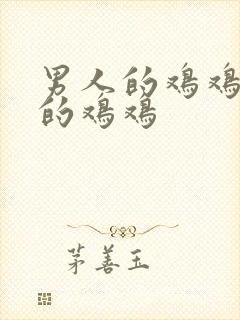 男人的鸡鸡
的鸡鸡
茅善玉